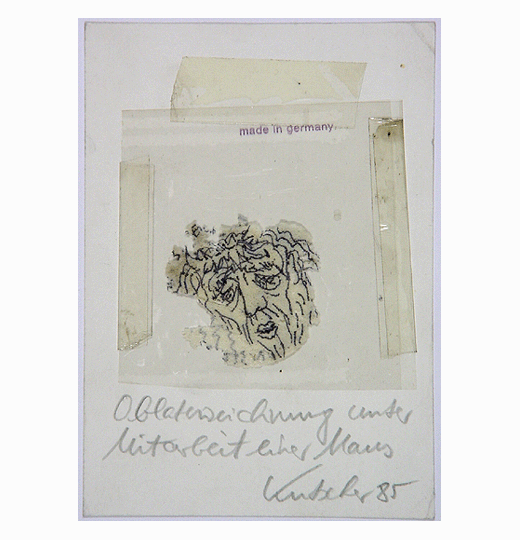 made in germany
Oblatenzeichnung unter
Mitarbeit einer Maus
Kutscher 85